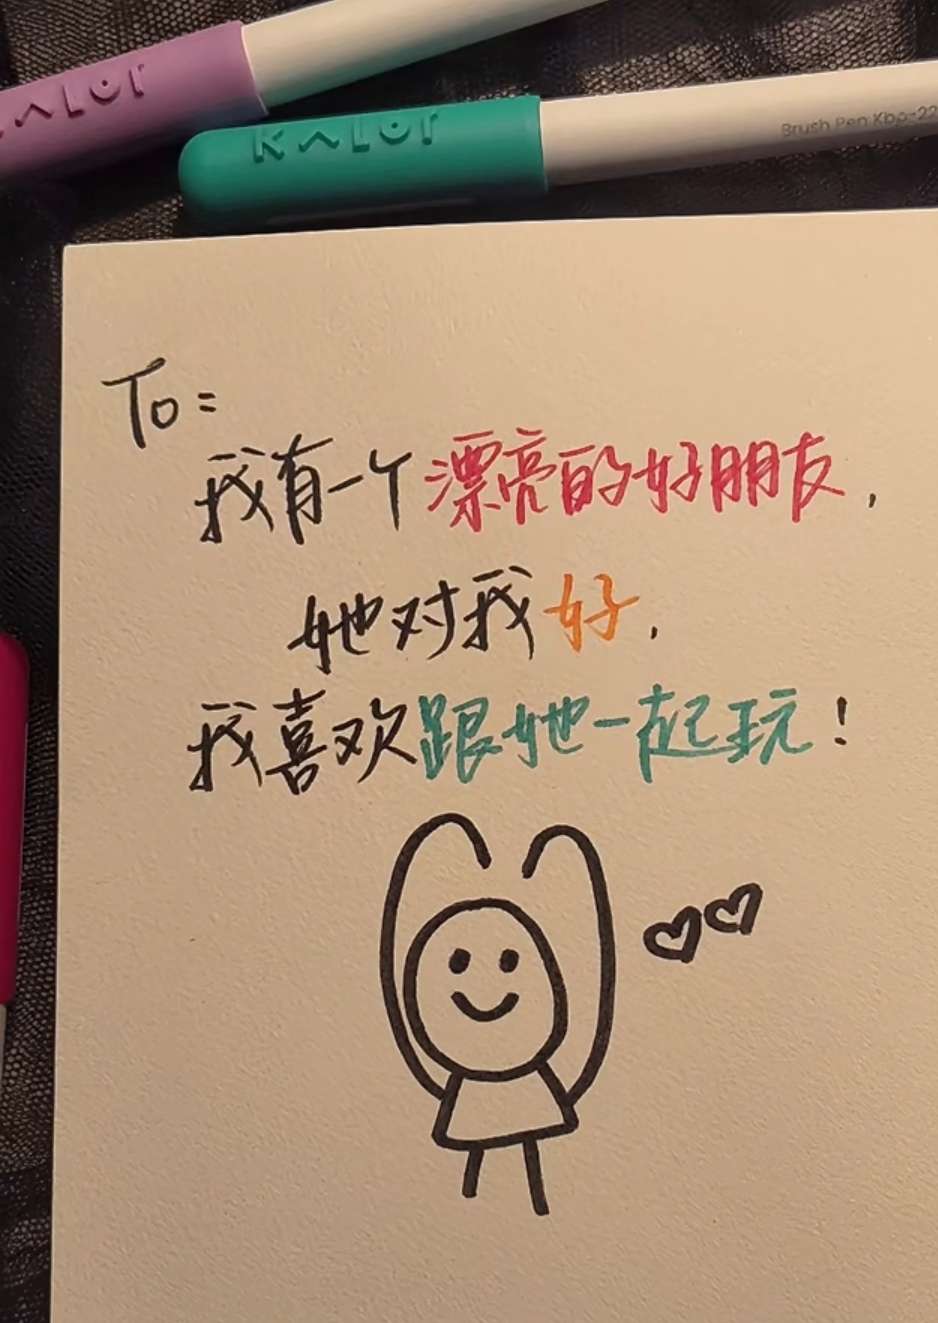 KALOr
KALOr
Brush Pen Kbp-22
To:
我有一个漂亮的好朋友,
她对我好,
我喜欢跟她一起玩!